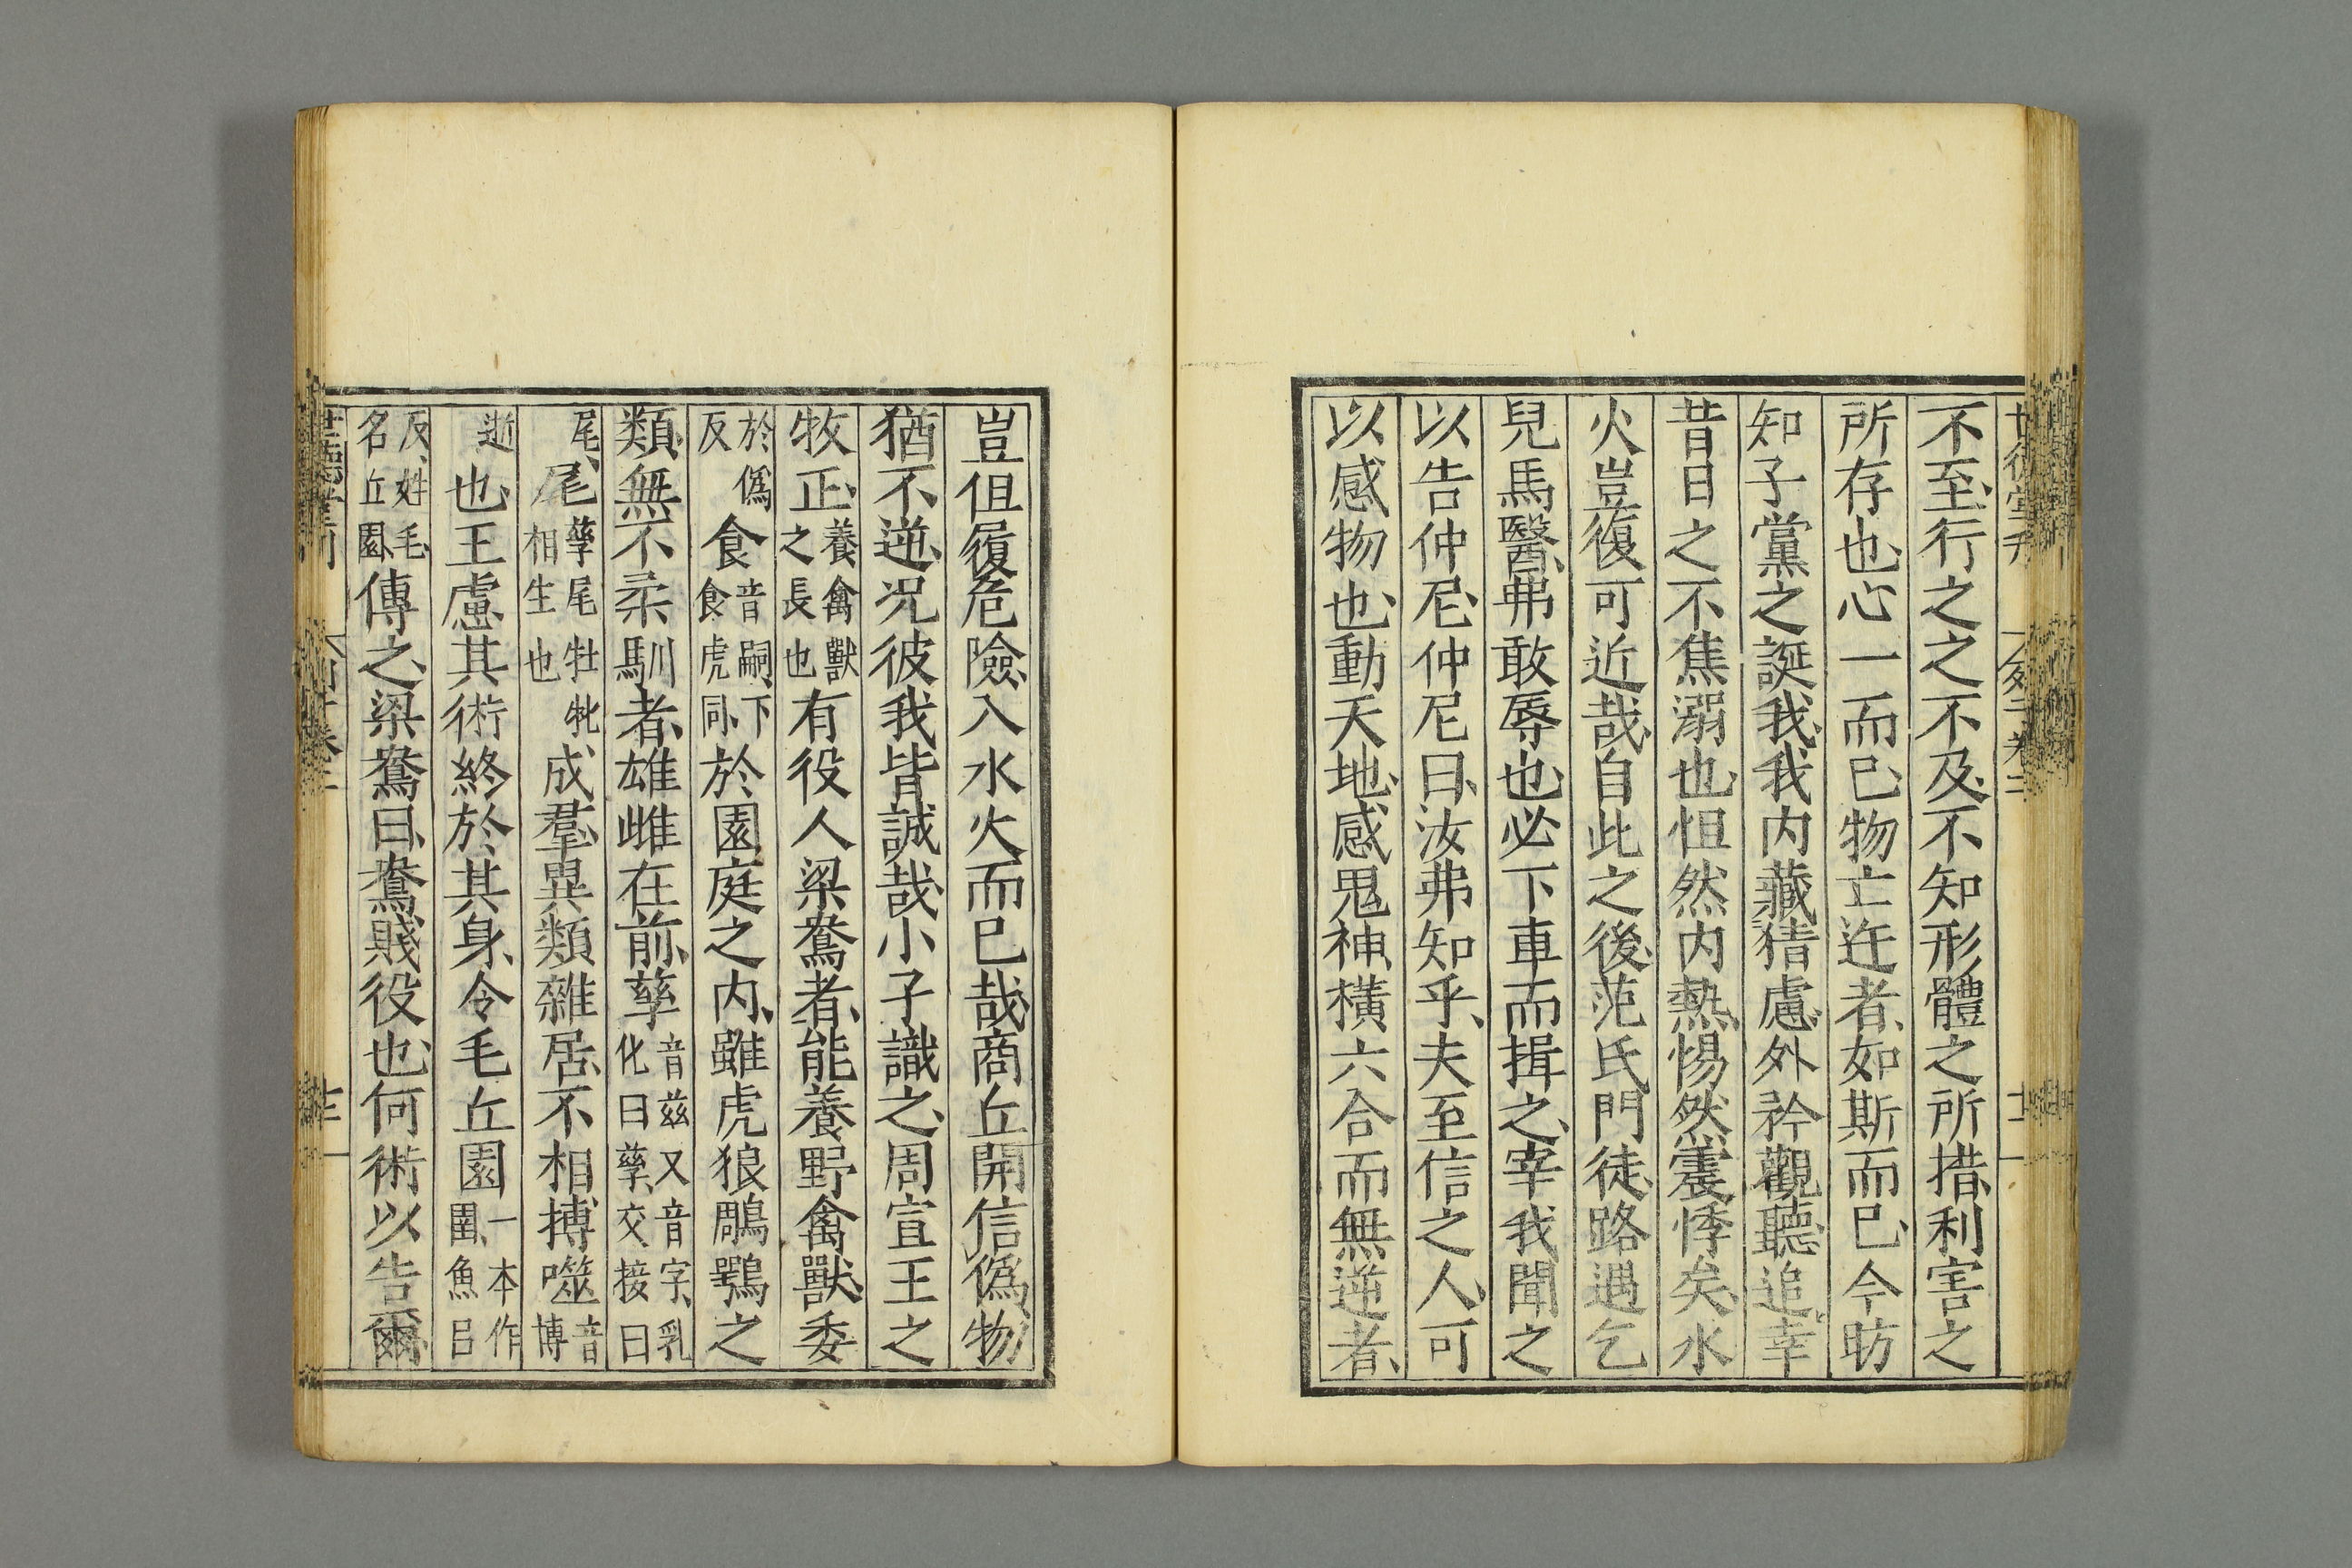 不至、行之之不及、不知形體之所措、利害之
所存也、心一而已、物亡迕者、如斯而已、今昉
知子黨之誕我、我內藏猜慮、外矜觀聽、追幸
昔日之不焦溺也、怛然內熱、惕然震悸矣、水
火豈復可近哉、自此之後、范氏門徒、路遇乞
兒馬醫、弗敢辱也、必下車而揖之、宰我聞之
以告仲尼、仲尼曰、汝弗知乎、夫至信之人、可
以感物也、動天地、感鬼神、橫六合、而無逆者、
豈但履危險、入水火而已哉、商丘開信僞物、
猶不逆、況彼我皆誠哉、小子識之、周宣王之
牧正、養禽獸之長也有役人梁鴦者、能養野禽獸、委
於僞反食音嗣、下食虎同、於園庭之內、雖虎狼鵰鶚之
類、無不柔馴者、雄雌在前、孳音玆又音字、乳化曰孳、交接曰
尾、尾孳尾牡牝相生也、成羣、異類雜居、不相搏噬音博
逝也、王慮其術終於其身、令毛丘園一本作圉、魚呂
反、姓毛、名丘園、傳之、梁鴦曰、鴦賤役也、何術以告爾、